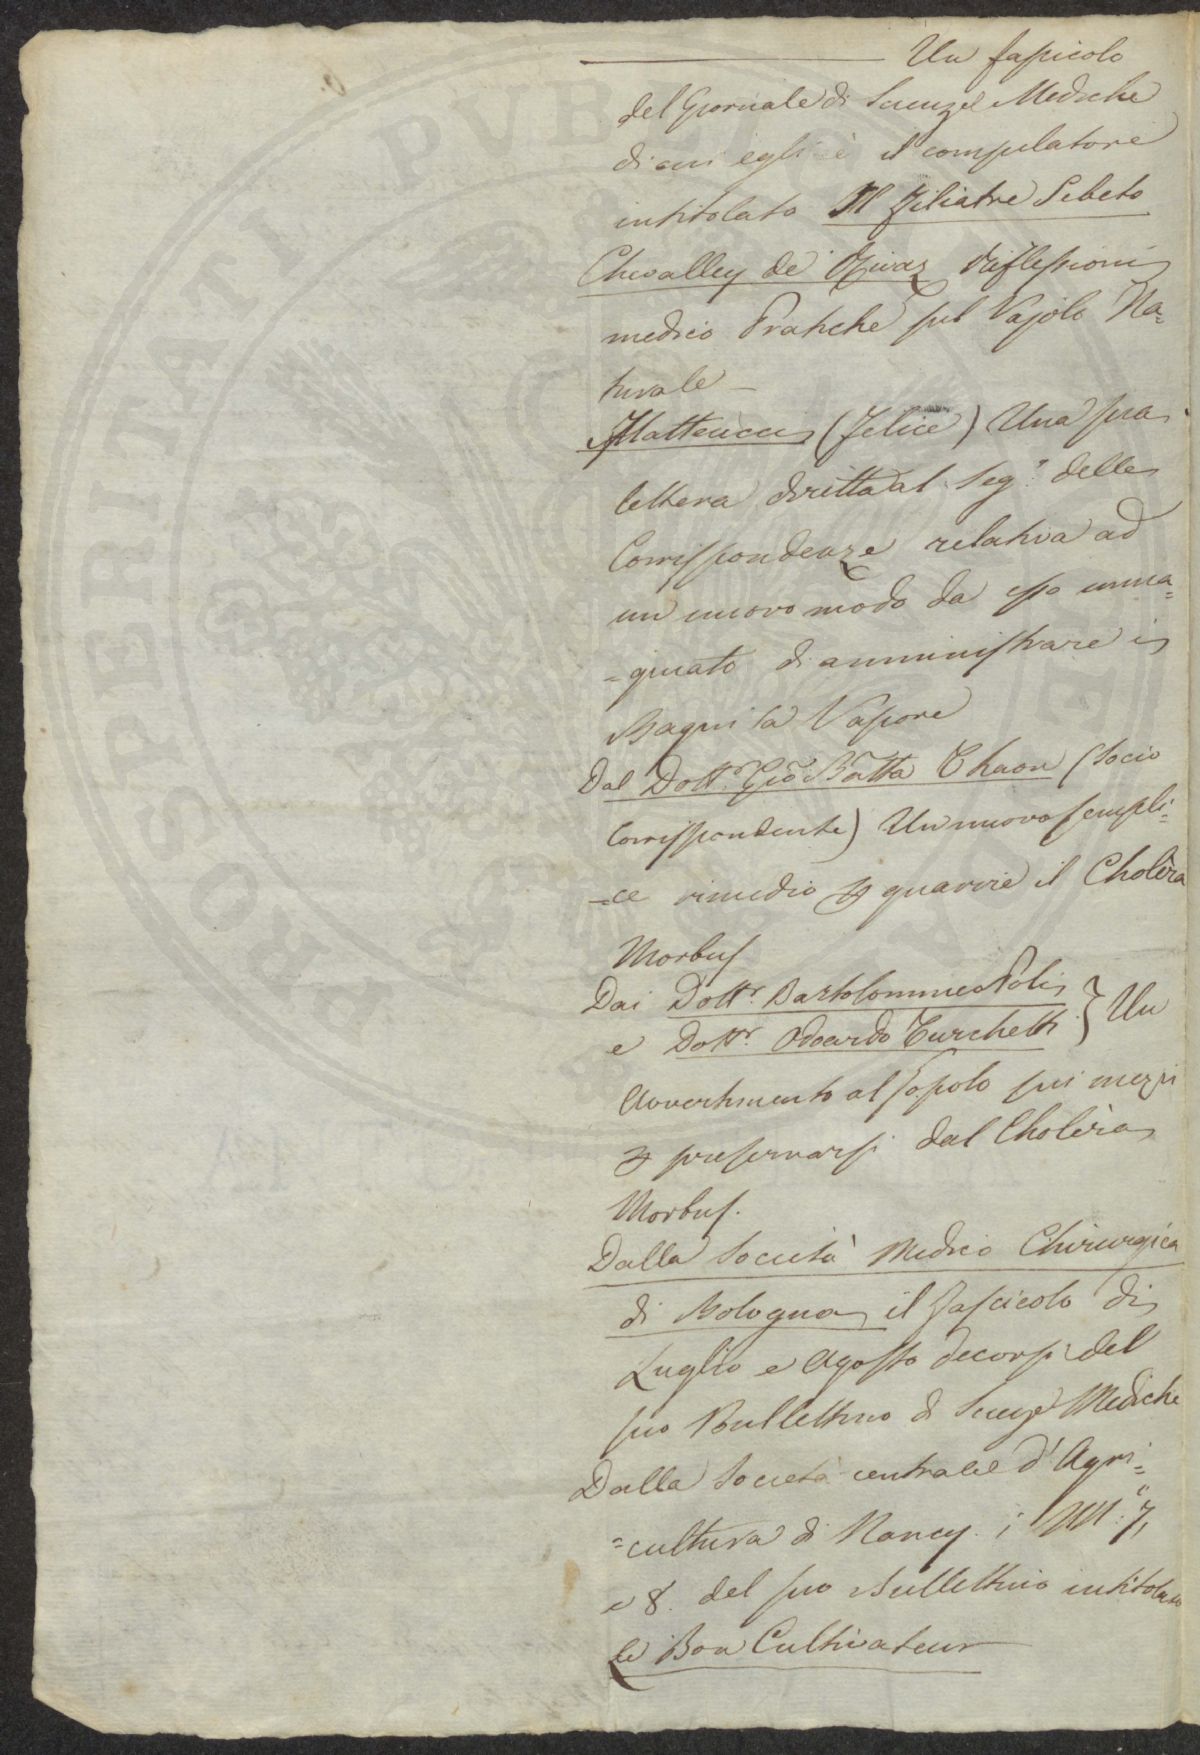 ——— Un fascicolo
del Giornale di Scienze Mediche
di cui egli è il compilatore
intitolato Il Filiatre Sebeto
Chevalley de Rivaz Riflessioni
medico Pratiche sul Vajolo Na=
turale —
Matteucci (Felice) Una sua
lettera diretta al Seg.° delle
Corrispondenze relativa ad
un nuovo modo da esso imma=
=ginato di amministrare i
Bagni a Vapore
Dal Dott.r Gio Batta Thaon (Socio
Corrispondente) Un nuovo sempli=
=ce rimedio p guarire il Cholèra
Morbus
Dai Dott.r Bartolommeo Poli
e Dott.r Odoardo Turchetti } Un
Avvertimento al Popolo sui mezzi
p preservarsi dal Cholèra
Morbus.
Dalla Società Medico Chirurgica
di Bologna il Fascicolo di
Luglio e Agosto decorsi del
suo Bullettino di Scienze Mediche
Dalla Società centrale d'Agri=
=cultura di Nancy i NN.i 7,
e 8. del suo Bullettino intitolato
Le Bon Cultivateur